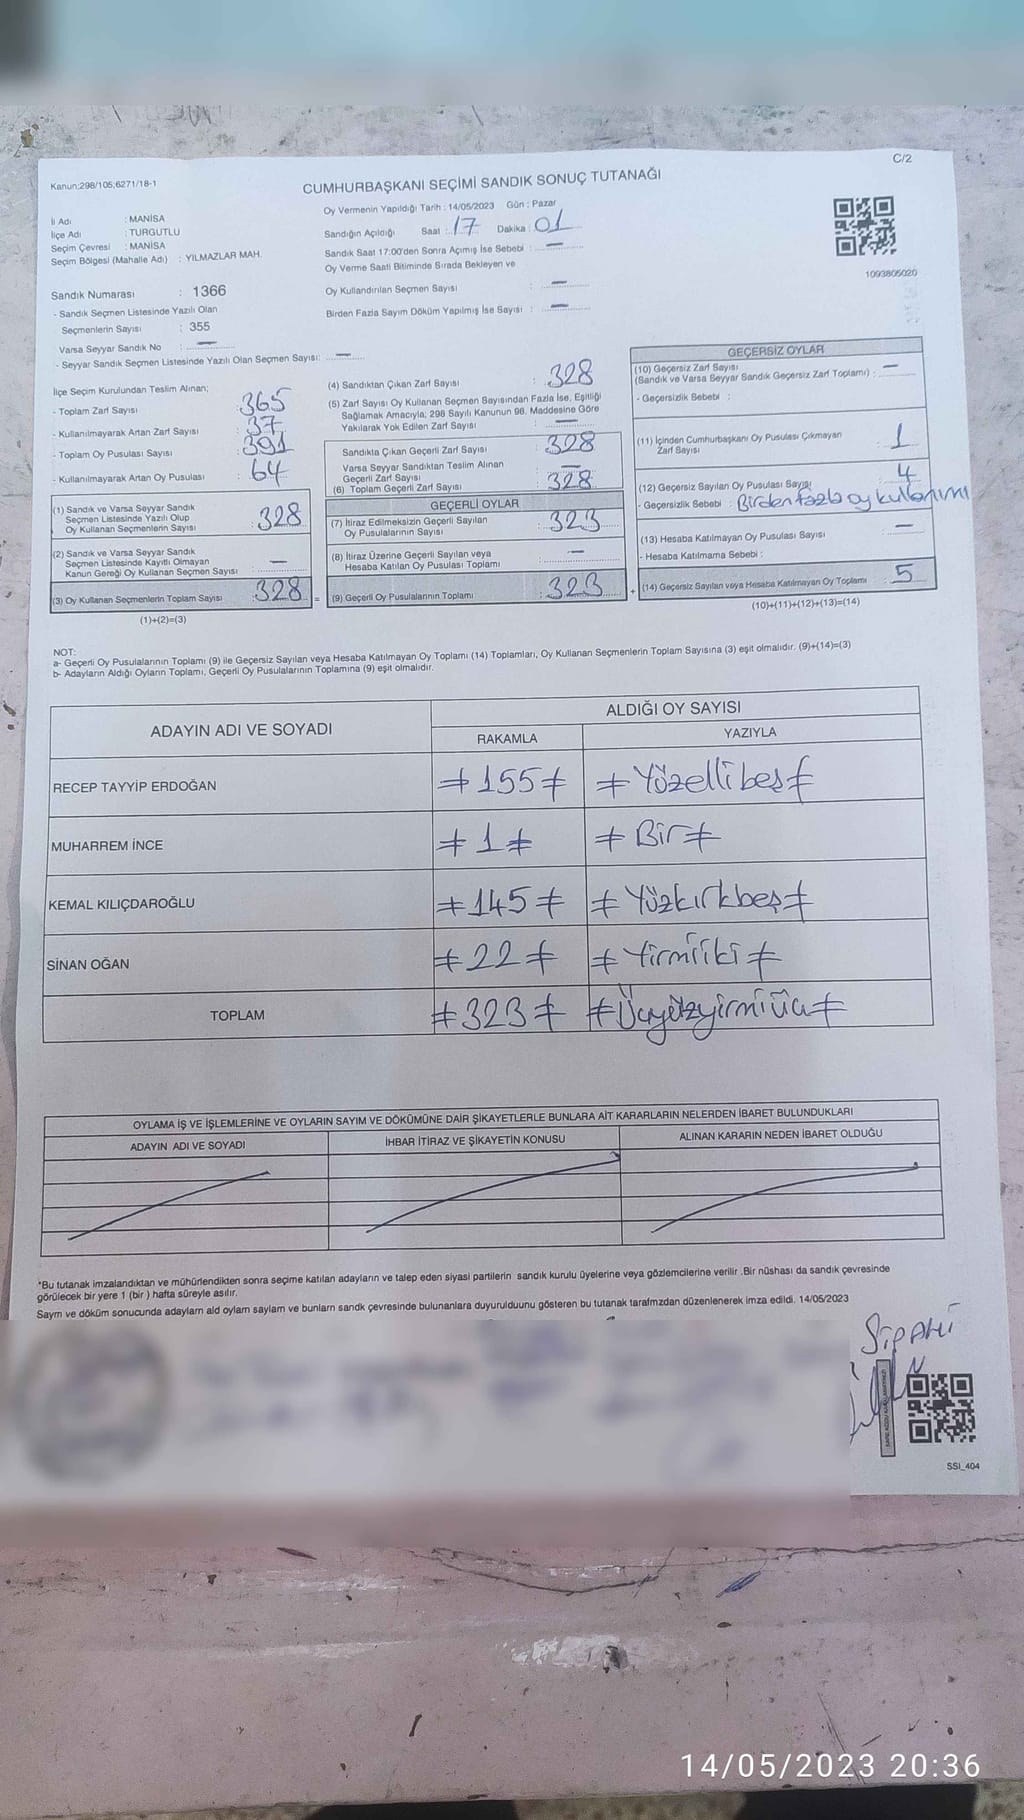 C/2
Kanun;298/105;6271/18-1
CUMHURBAŞKANI SEÇİMİ SANDIK SONUÇ TUTANAĞI
İl Adı : MANİSA
İlçe Adı : TURGUTLU
Seçim Çevresi : MANİSA
Seçim Bölgesi (Mahalle Adı) : YILMAZLAR MAH.
Oy Vermenin Yapıldığı Tarih : 14/05/2023 Gün : Pazar
Sandığın Açıldığı Saat : 17 Dakika : 01
Sandık Saat 17:00'den Sonra Açımış İse Sebebi : —
Oy Verme Saati Bitiminde Sırada Bekleyen ve
Oy Kullandırılan Seçmen Sayısı : —
Birden Fazla Sayım Döküm Yapılmış İse Sayısı : —
1093805020
Sandık Numarası : 1366
- Sandık Seçmen Listesinde Yazılı Olan
Seçmenlerin Sayısı : 355
Varsa Seyyar Sandık No : —
- Seyyar Sandık Seçmen Listesinde Yazılı Olan Seçmen Sayısı: —
İlçe Seçim Kurulundan Teslim Alınan;
- Toplam Zarf Sayısı : 365
- Kullanılmayarak Artan Zarf Sayısı : 37
- Toplam Oy Pusulası Sayısı : 391
- Kullanılmayarak Artan Oy Pusulası : 64
(1) Sandık ve Varsa Seyyar Sandık
Seçmen Listesinde Yazılı Olup
Oy Kullanan Seçmenlerin Sayısı : 328
(2) Sandık ve Varsa Seyyar Sandık
Seçmen Listesinde Kayıtlı Olmayan
Kanun Gereği Oy Kullanan Seçmen Sayısı : —
(3) Oy Kullanan Seçmenlerin Toplam Sayısı : 328 =
(1)+(2)=(3)
(4) Sandıktan Çıkan Zarf Sayısı : 328
(5) Zarf Sayısı Oy Kullanan Seçmen Sayısından Fazla İse, Eşitliği
Sağlamak Amacıyla; 298 Sayılı Kanunun 98. Maddesine Göre
Yakılarak Yok Edilen Zarf Sayısı : —
Sandıkta Çıkan Geçerli Zarf Sayısı : 328
Varsa Seyyar Sandıktan Teslim Alınan
Geçerli Zarf Sayısı : —
(6) Toplam Geçerli Zarf Sayısı : 328
GEÇERLİ OYLAR
(7) İtiraz Edilmeksizin Geçerli Sayılan
Oy Pusulalarının Sayısı : 323
(8) İtiraz Üzerine Geçerli Sayılan veya
Hesaba Katılan Oy Pusulası Toplamı : —
(9) Geçerli Oy Pusulalarının Toplamı : 323 +
GEÇERSİZ OYLAR
(10) Geçersiz Zarf Sayısı
(Sandık ve Varsa Seyyar Sandık Geçersiz Zarf Toplamı) : —
- Geçersizlik Sebebi :
(11) İçinden Cumhurbaşkanı Oy Pusulası Çıkmayan
Zarf Sayısı : 1
(12) Geçersiz Sayılan Oy Pusulası Sayısı : 4
- Geçersizlik Sebebi : Birden fazla oy kullanımı
(13) Hesaba Katılmayan Oy Pusulası Sayısı : —
- Hesaba Katılmama Sebebi :
(14) Geçersiz Sayılan veya Hesaba Katılmayan Oy Toplamı : 5
(10)+(11)+(12)+(13)=(14)
NOT:
a- Geçerli Oy Pusulalarının Toplamı (9) ile Geçersiz Sayılan veya Hesaba Katılmayan Oy Toplamı (14) Toplamları, Oy Kullanan Seçmenlerin Toplam Sayısına (3) eşit olmalıdır. (9)+(14)=(3)
b- Adayların Aldığı Oyların Toplamı, Geçerli Oy Pusulalarının Toplamına (9) eşit olmalıdır.
ADAYIN ADI VE SOYADI
ALDIĞI OY SAYISI
RAKAMLA YAZIYLA
RECEP TAYYİP ERDOĞAN ≠155≠ ≠Yüzellibeş≠
MUHARREM İNCE ≠1≠ ≠Bir≠
KEMAL KILIÇDAROĞLU ≠145≠ ≠Yüzkırkbeş≠
SİNAN OĞAN ≠22≠ ≠Yirmiiki≠
TOPLAM ≠323≠ ≠Üçyüzyirmiüç≠
OYLAMA İŞ VE İŞLEMLERİNE VE OYLARIN SAYIM VE DÖKÜMÜNE DAİR ŞİKAYETLERLE BUNLARA AİT KARARLARIN NELERDEN İBARET BULUNDUKLARI
ADAYIN ADI VE SOYADI İHBAR İTİRAZ VE ŞİKAYETİN KONUSU ALINAN KARARIN NEDEN İBARET OLDUĞU
*Bu tutanak imzalandıktan ve mühürlendikten sonra seçime katılan adayların ve talep eden siyasi partilerin sandık kurulu üyelerine veya gözlemcilerine verilir .Bir nüshası da sandık çevresinde
görülecek bir yere 1 (bir ) hafta süreyle asılır.
Sayım ve döküm sonucunda adayların ald oyların sayları ve bunların sandk çevresinde bulunanlara duyurulduunu gösteren bu tutanak tarafmzdan düzenlenerek imza edildi. 14/05/2023
SİPAHİ
SSI_404
14/05/2023 20:36